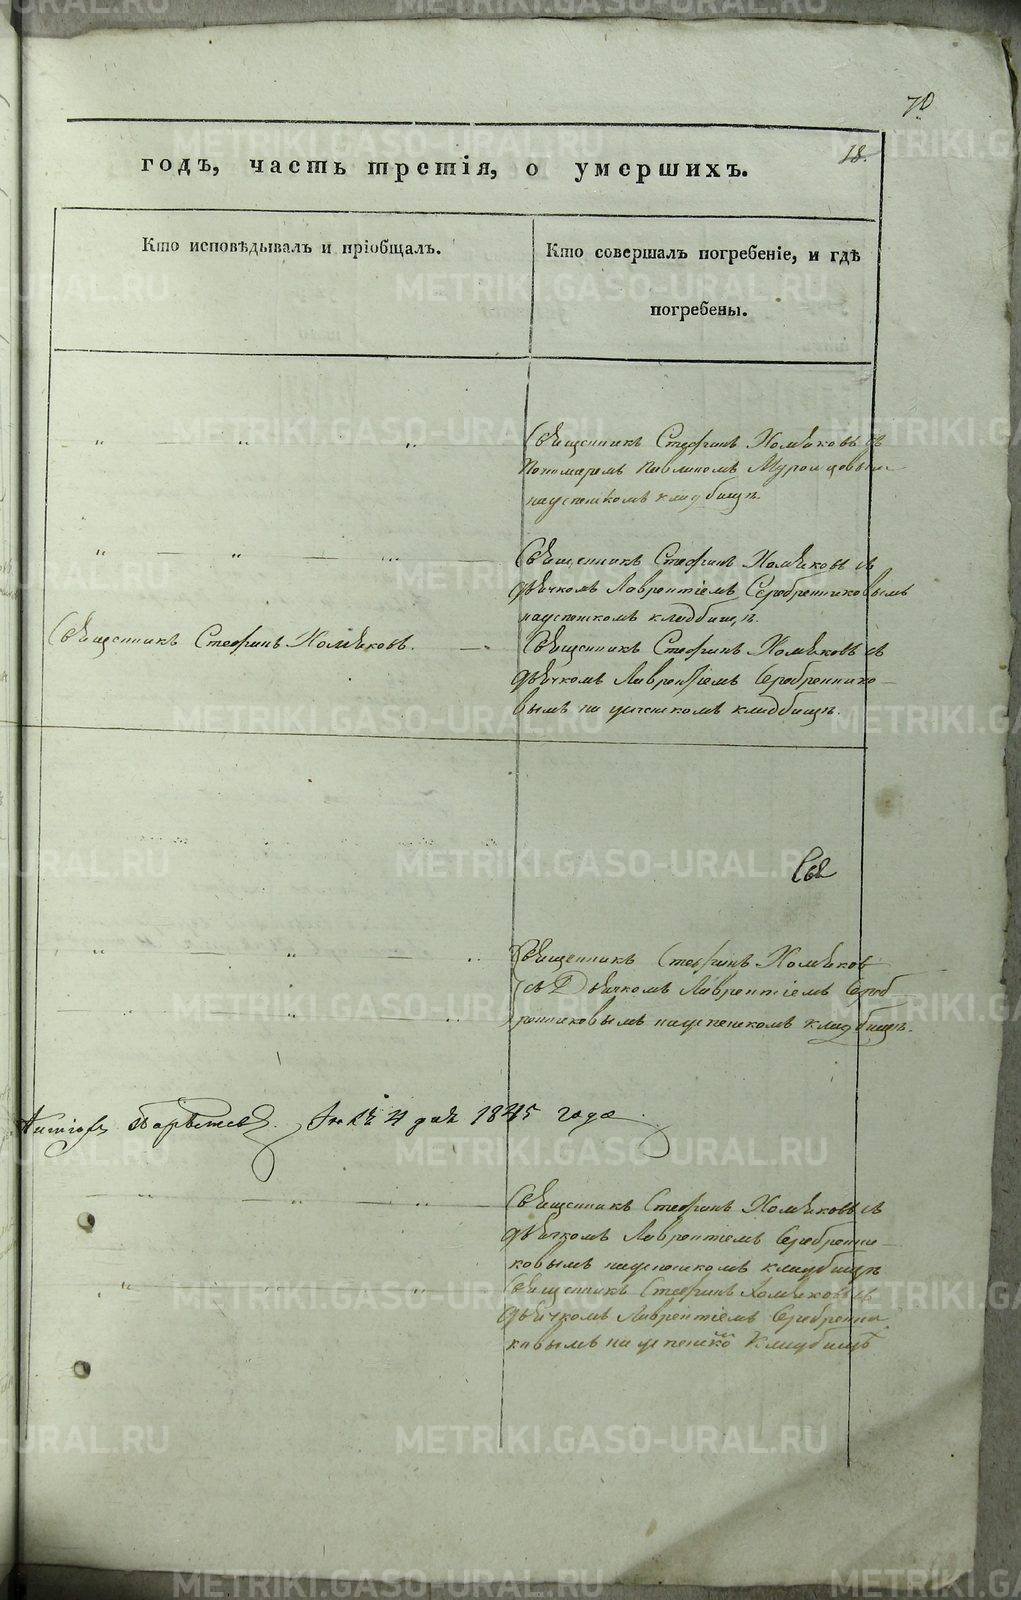 70
18.
годъ, часть третія, о умершихъ.
Кто исповѣдывалъ и пріобщалъ.
Кто совершалъ погребеніе, и гдѣ
погребены.
Священникъ Стефанъ Хомяковъ съ
Пономаремъ Павлиномъ
кладбищѣ.
Священникъ Стефанъ Хомяковъ съ
дьячкомъ Лаврентіемъ Серебренниковымъ
кладбищѣ.
Священникъ Стефанъ Хомяковъ.
Священникъ Стефанъ Хомяковъ съ
дьячкомъ Лаврентіемъ Серебреннико-
вымъ на кладбищѣ.
Свя
Священникъ Стефанъ Хомяковъ
съ Дьячкомъ Лаврентіемъ Среб
ренниковымъ кладбищѣ.
4 дня 1845 года
Священникъ Стефанъ Хомяковъ съ
дьячкомъ Лаврентіемъ Серебренни-
ковымъ кладбищѣ
Священникъ Стефанъ Хомяковъ съ
дьячкомъ Лаврентіемъ Серебренни
ковымъ кладбищѣ
METRIKI.GASO-URAL.RU